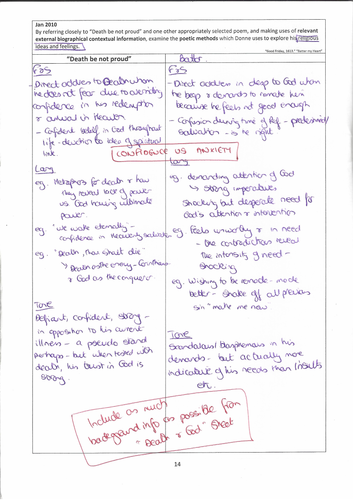 Jan 2010
By referring closely to "Death be not proud" and one other appropriately selected poem, and making uses of relevant
external biographical contextual information, examine the poetic methods which Donne uses to explore his religious
ideas and feelings.
"Death be not proud"
Batter
F&S
- Direct address to Death whom
he does not fear due to
confidence in his redemption
& arrival in Heaven
- Confident belief in God throughout
life - devotion to idea of spiritual
link
F&S
- Direct address in to God whom
he begs & demands to remake him
because he feels not good enough
- Confusion during time of Ref - predestined
salvation - is he right
CONFIDENCE VS ANXIETY
Lang
eg. Metaphors for death & how
they reveal lack of power
vs God having ultimate
power.
eg 'we wake eternally' -
confidence in Heavenly salvation
eg 'Death, thou shalt die'
↳ Death as the enemy
& God as the conqueror
Lang
eg. demanding attention of God
↳ strong imperatives
Shocking but desperate need for
God's attention & intervention
eg Feels unworthy & in need
- the contradictions reveal
the intensity of need -
shocking
eg. Wishing to be remade - made
better - shake off all previous
sin "make me new
Tone
Defiant, confident, strong -
in opposition to his current
illness - a pseudo stand
perhaps - but when tested with
death, his trust in God is
strong
Tone
Scandalous/ blasphemous in his
demands - but actually more
indicative of his needs than insults
etc.
Include as much
background info as possible from
"Death & God" Sheet
14